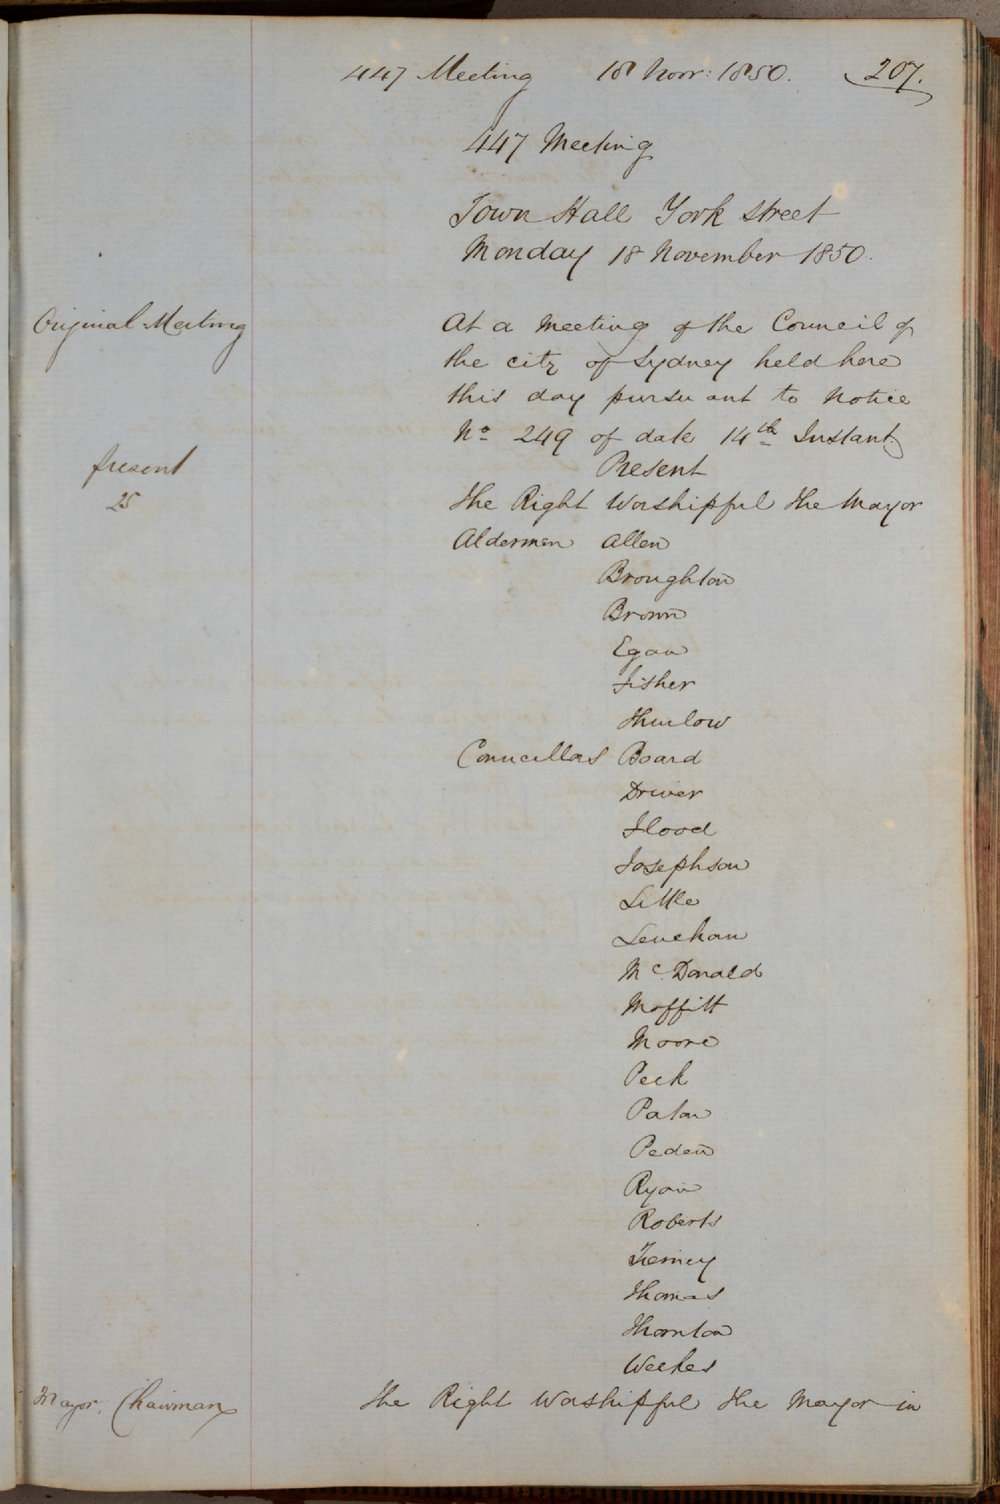 447 Meeting 18 Novr: 1850. 207.
447 Meeting
Town Hall York Street
Monday 18 November 1850.
Original Meeting
At a Meeting of the Council of
the city of Sydney held here
this day pursuant to Notice
No 249 of date 14th Instant
Present
Present
25
The Right Worshipful The Mayor
Aldermen Allen
Broughton
Brown
Egan
Fisher
Thurlow
Councillors Board
Driver
Flood
Josephson
Little
Lenehan
McDonald
Moffitt
Moore
Peek
Paton
Peden
Ryan
Roberts
Tierney
Thomas
Thornton
Weekes
Mayor. Chairman
The Right Worshipful The Mayor in